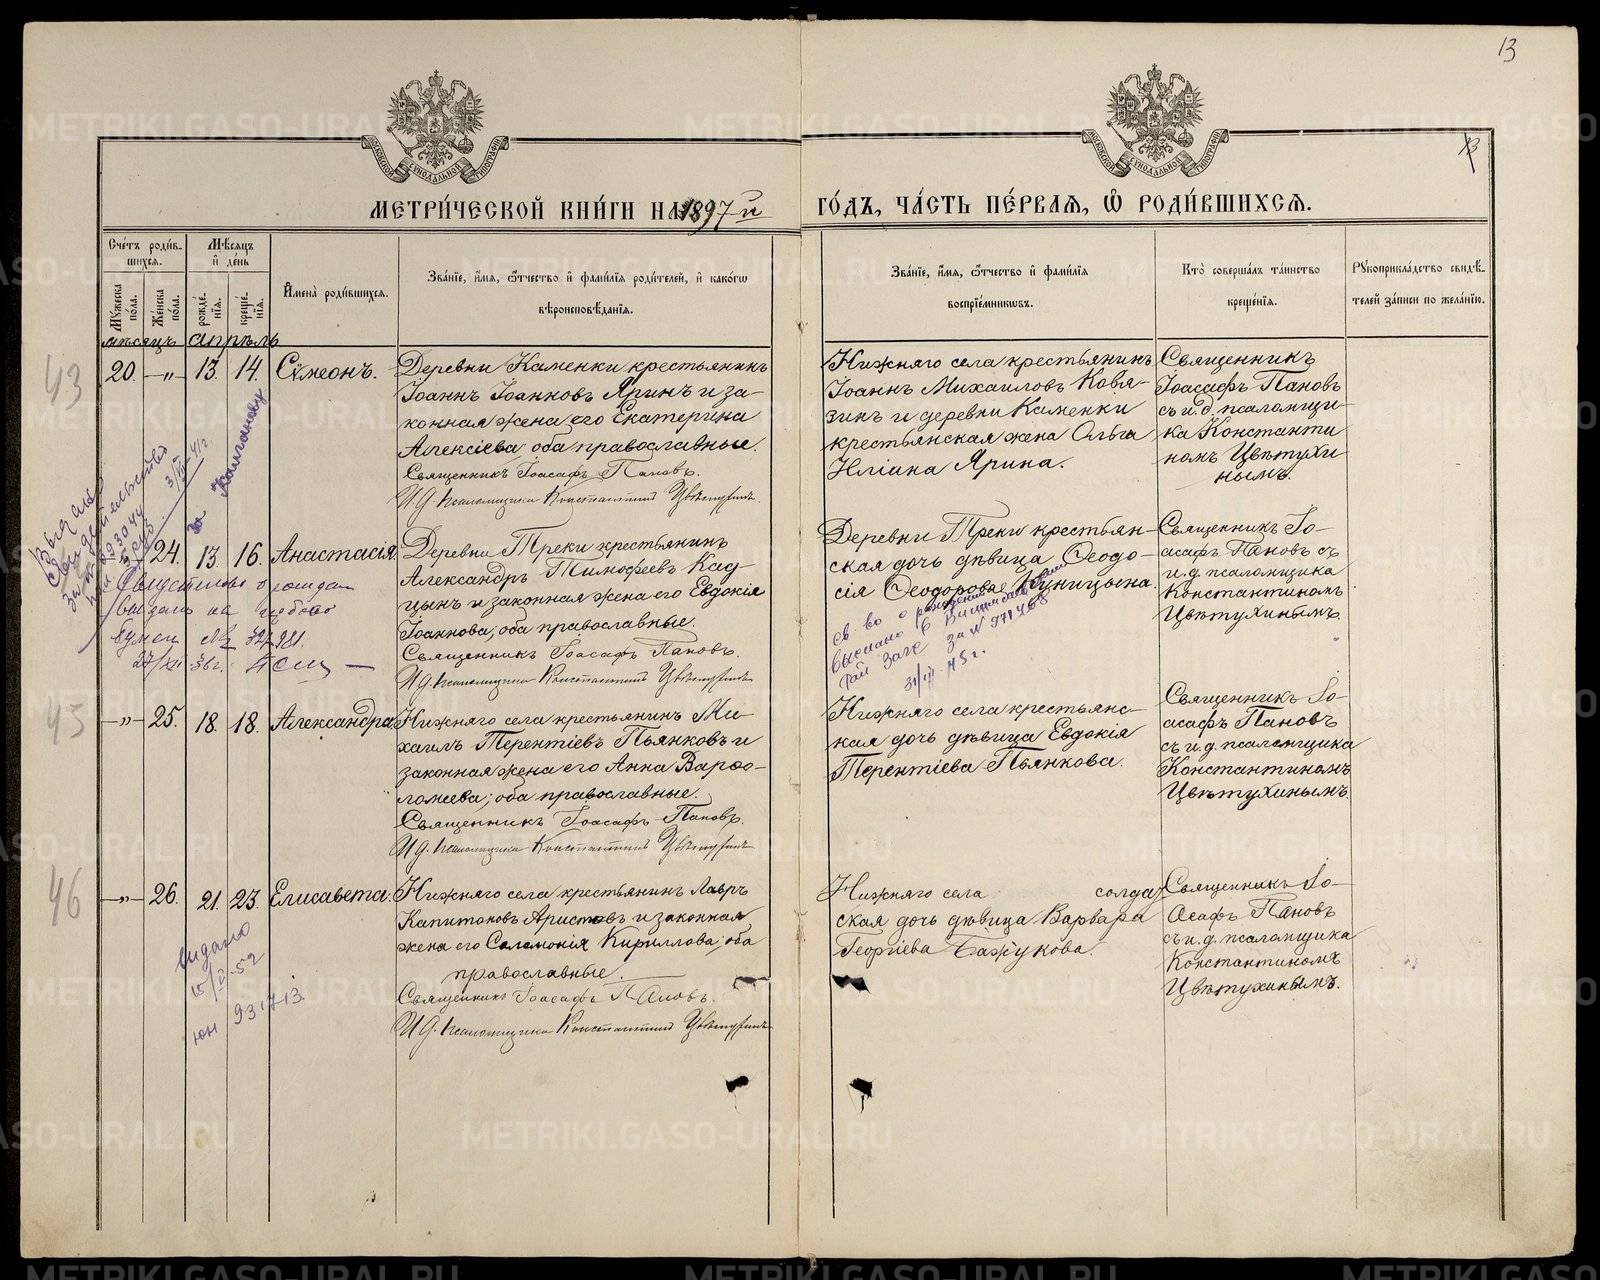 13
13
МОСКОВСКОЙ СѴНОДАЛЬНОЙ ТИПОГРАФІИ
МОСКОВСКОЙ СѴНОДАЛЬНОЙ ТИПОГРАФІИ
МЕТРИ́ЧЕСКОЙ КНИ́ГИ НА 1897 й
ГО́ДЪ, ЧА́СТЬ ПЕ́РВАѦ, Ѡ҆ РОДИ́ВШИХСѦ.
Сче́тъ роди́в-
шихсѧ.
Мꙋжеска по́ла.
Же́нска по́ла.
Мѣ́сѧцъ и҆ де́нь
рожде́нїѧ.
креще́нїѧ.
И҆мена̀ роди́вшихсѧ.
Зва́нїе, и҆́мѧ, ѻ҆́тчество и҆ фами́лїѧ роди́телей, и҆ како́гѡ
вѣроисповѣ́данїѧ.
Зва́нїе, и҆́мѧ, ѻ҆́тчество и҆ фами́лїѧ
воспрїе́мникѡвъ.
Кто̀ соверша́лъ та́инство
креще́нїѧ.
Рꙋкоприкла́дство свидѣ́-
телей за́писи по жела́нїю.
мѣсяцъ апрѣль
43
20. —„ 13. 14. Сѵмеонъ.
Деревни Каменки крестьянинъ
Іоаннъ Іоанновъ Яринъ и за-
конная жена его Екатерина
Алексіева оба православные.
Священникъ Іоасафъ Пановъ.
И.д. псаломщика Константинъ Цвѣтухинъ.
Нижняго села крестьянинъ
Іоаннъ Михаиловъ Ковя-
зинъ и деревни Каменки
крестьянская жена Ольга
Ярина.
Священникъ
Іоасафъ Пановъ
съ и.д. псаломщи-
ка Константи
номъ Цвѣтухи
нымъ.
24. 13. 16. Анастасія
Деревни Треки крестьянинъ
Александръ Тимофеевъ Кад-
цынъ и законная жена его Евдокія
Іоаннова; оба православные.
Священникъ Іоасафъ Пановъ.
И.д. псаломщика Константинъ Цвѣтухинъ
Деревни Треки крестьян-
ская дочь дѣвица Ѳеодо-
сія Ѳеодорова Куницына.
Священникъ Іо-
асафъ Пановъ съ
и.д. псаломщика
Константиномъ
Цвѣтухинымъ.
св-во о рождении
выслано в
рай загс за №
31/III 45 г.
45
—„— 25. 18. 18. Александра
Нижняго села крестьянинъ Ми-
хаилъ Терентіевъ Пьянковъ и
законная жена его Анна Варѳо-
ломеева; оба православные.
Священникъ Іоасафъ Пановъ.
И.д. псаломщика Константинъ Цвѣтухинъ
Нижняго села крестьянс-
кая дочь дѣвица Евдокія
Терентіева Пьянкова.
Священникъ Іо-
асафъ Пановъ
съ и.д. псаломщика
Константиномъ
Цвѣтухинымъ.
46
—„— 26. 21. 23. Елисавета.
Нижняго села крестьянинъ Лавръ
Капитоновъ Аристовъ и законная
жена его Соломонія Кириллова; оба
православные.
Священникъ Іоасафъ Пановъ.
И.д. псаломщика Константинъ Цвѣтухинъ
Нижняго села солдат
ская дочь дѣвица Варвара
Георгіева Бажукова.
Священникъ Іо-
асафъ Пановъ
съ и.д. псаломщика
Константиномъ
Цвѣтухинымъ.
Выдано
свидетельство
выдано
юн 931713.
METRIKI.GASO-URAL.RU